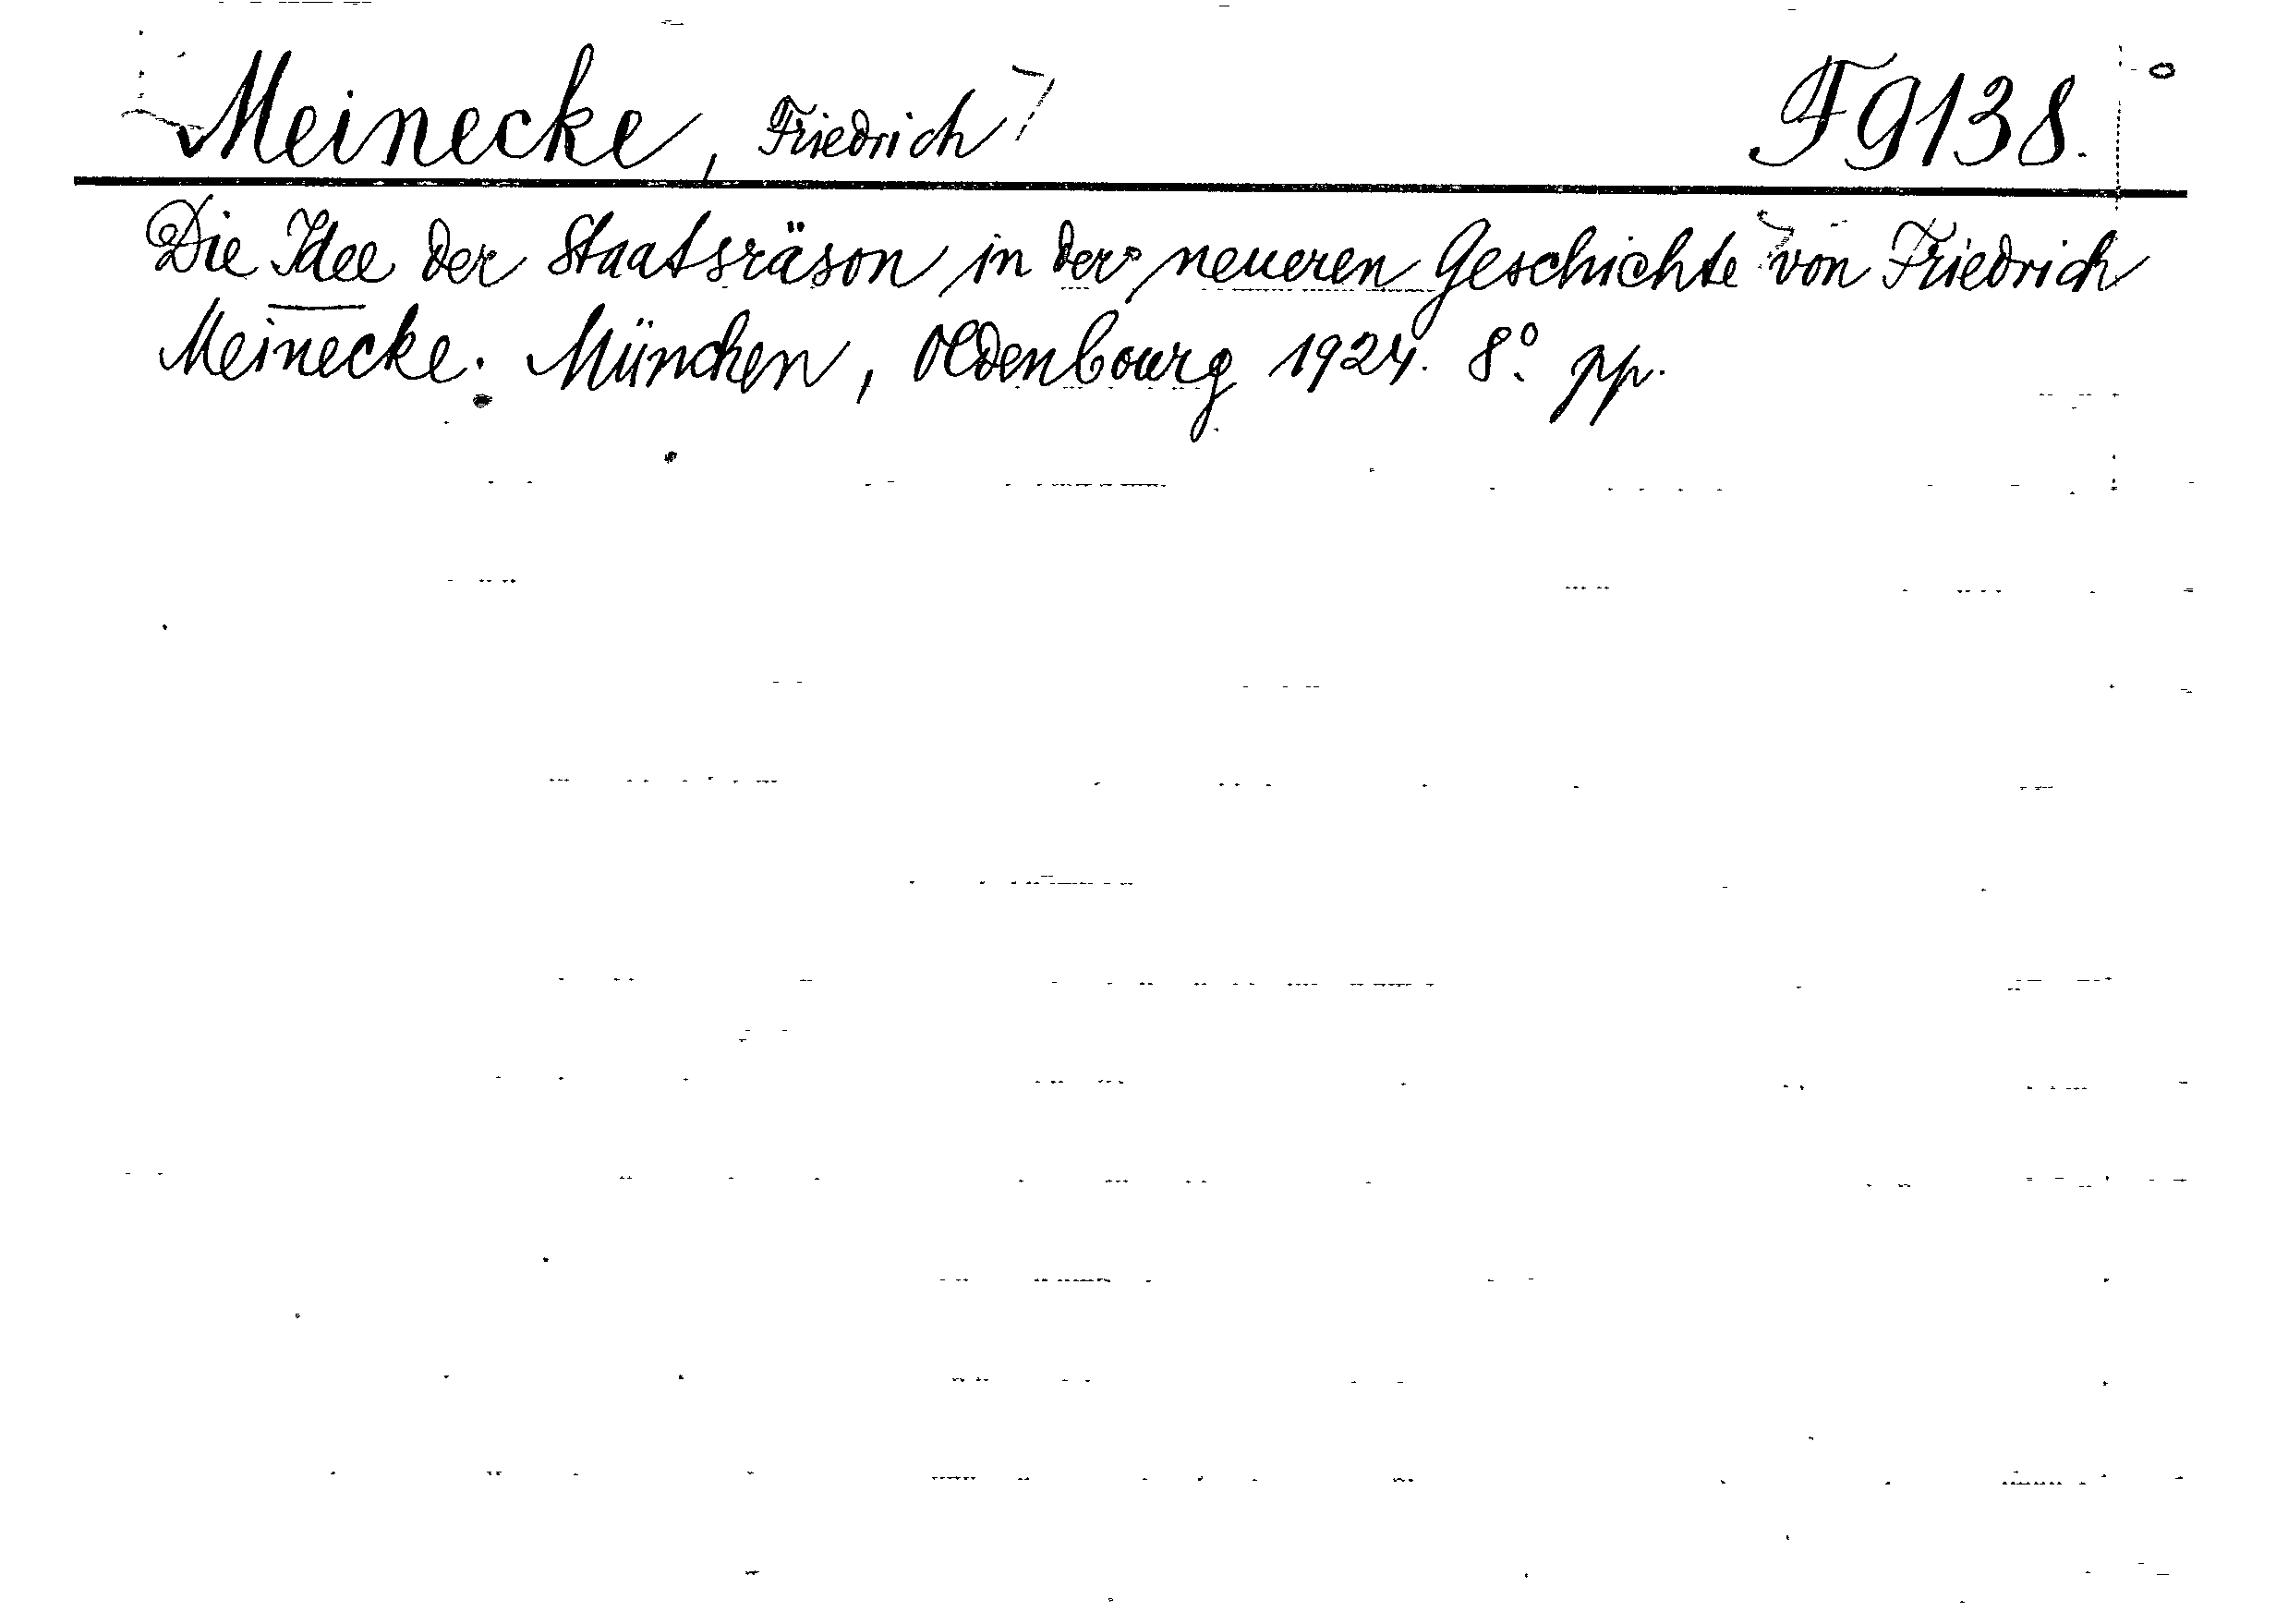 Meinecke, Friedrich F 9138.
Die Idee der Staatsräson in der neueren Geschichte von Friedrich
Meinecke. München, Oldenbourg 1924. 8°. pp.